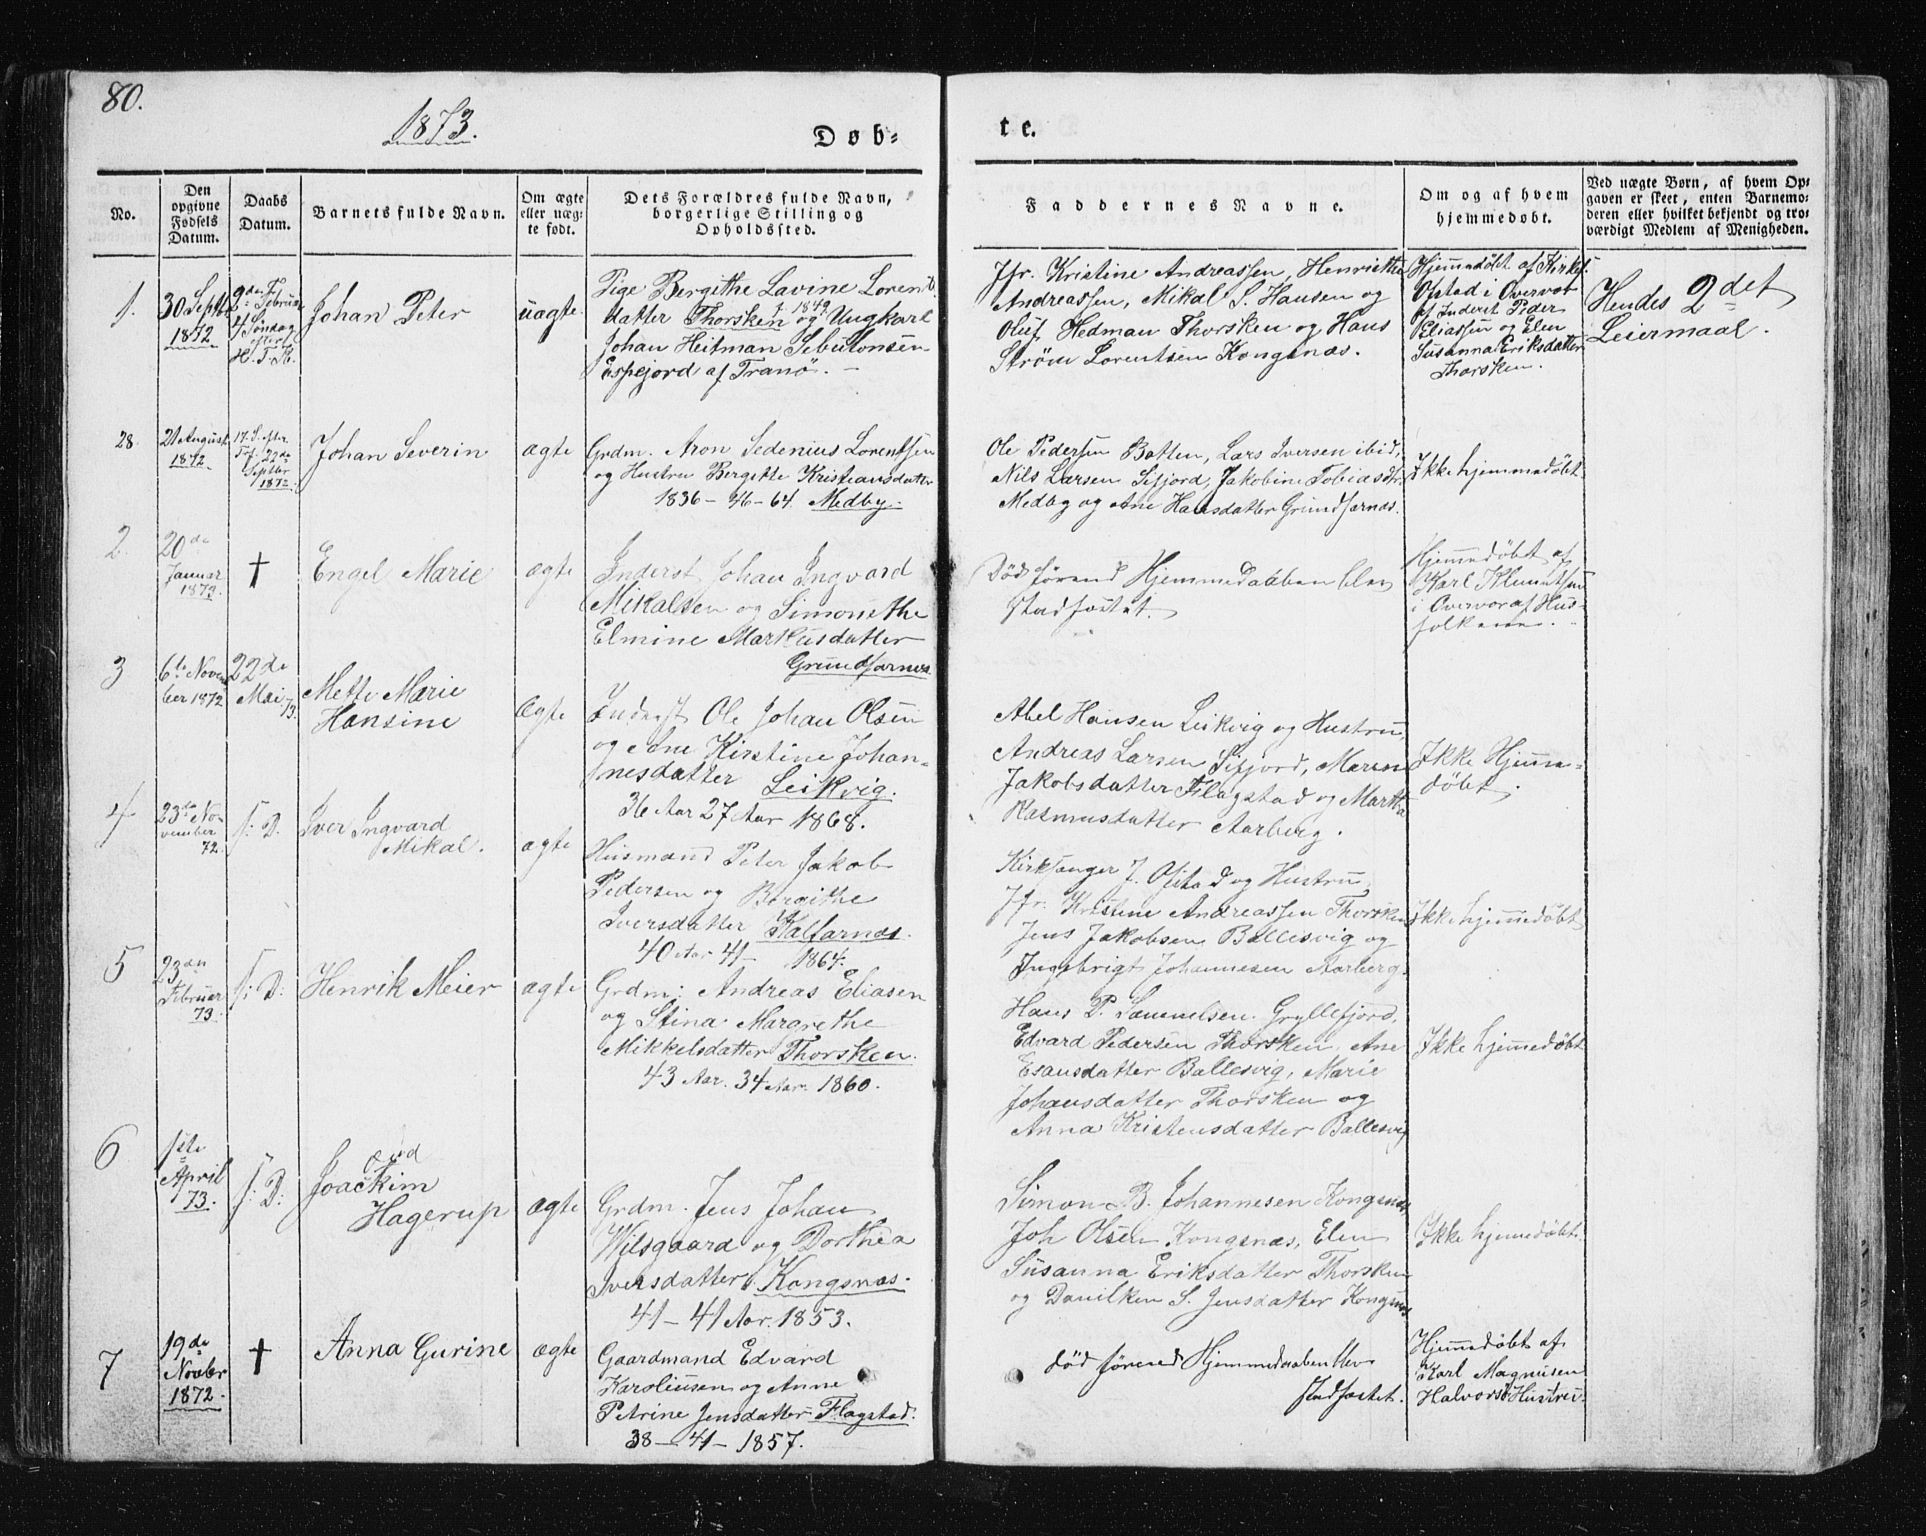 80.
1873.
Døb-
te.
No.
Den opgivne Fødsels Datum.
Daabs Datum.
Barnets fulde Navn.
Om ægte eller uægte født.
Dets Forældres fulde Navn, borgerlige Stilling og Opholdssted.
Faddernes Navne.
Om og af hvem hjemmedøbt.
Ved uægte Børn, af hvem Opgaven er skeet, enten Barnemoderen eller hvilket bekjendt og troværdigt Medlem af Menigheden.
1.
30 Septbr
1872
2den Februar
4 Søndag
efter
H. 3 K.
Johan Peter
uægte
Pige Bergithe Lavine Lorents
datter Thorsken f. 1849 og Ungkarl
Johan Heitman Sebulonsen
Espejord af Tranø.
Jfr. Kristine Andreassen, Henriette
Andreassen, Mikal S. Hansen og
Oluf Hedman Thorsken og Hans
Strøm Lorentsen Kongsnæs.
Hjemmedøbt af Kirkes.
Ofstad i Overvær
af Inderst Peder
Eliassen og Elen
Susanna Eriksdatter
Thorsken.
Hendes 2det
Leiermaal.
28.
21 August
1872.
17. S. efter
Tr. 22de
Septbr
1872.
Johan Severin
ægte
Grdm. Aron Sedenius Lorentsen
og Hustru Bergitte Kristiansdatter
1836 - 46 - 64. Medby.
Ole Pedersen Botten, Lars Iversen ibid,
Nils Larsen Sifjord, Jakobine Tobiasdtr
Medby og Ane Hansdatter Grundfarnæs.
Ikke hjemmedøbt
2.
20de
Januar
1873.
†
Engel Marie
ægte
Inderst Johan Ingvard
Mikalsen og Simonethe
Elmine Markusdatter
Grundfarnæs
Død førend Hjemmedaaben blev
stadfæstet.
Hjemmedøbt af
Karl Klemetsen
i Overvær af Hus-
folkene.
3
6te Novem
ber 1872
22de
Mai 73.
Mette Marie
Hansine
Ægte
Inderst Ole Johan Olsen
og Ane Kirstine Johan-
nesdatter Leikvig.
36 Aar 27 Aar 1868.
Abel Hansen Leikvig og Hustru,
Andreas Larsen Sifjord, Maren
Jakobsdatter Flagstad og Martha
Rasmusdatter Aarberg.
Ikke Hjemme-
døbt.
4
23de No-
vember
72.
s: D.
Iver Ingvard
Mikal.
ægte
Husmand Peter Jakob
Pedersen og Bergithe
Iversdatter Kalfarnæs.
40 Aar 41 - 1864.
Kirksanger J. Ofstad og Hustru,
Jfr. Kristine Andreassen Thorsken
Jens Jakobsen Ballesvig og
Ingebrigt Johannesen Aarberg.
Ikke hjemmedøbt
5
23de
Februar
73.
s: D:
Henrik Meier
ægte
Grdm: Andreas Eliasen
og Stina Margrethe
Mikkelsdatter Thorsken.
43 Aar. 34 Aar. 1860.
Hans P. Samuelsen Gryllefjord,
Edvard Pedersen Thorsken, Ane
Esausdatter Ballesvig, Marie
Johansdatter Thorsken og
Anna Kristensdatter Ballesvig
Ikke hjemmedøbt
6
1ste
April
73.
s: D:
Joackim
Hagerup
ægte
Grdm. Jens Johan
Wilsgaard og Dorthea
Iversdatter Kongsnæs.
41 - 41 Aar. 1853.
Simon B. Johannesen Kongsnæs,
Joh Olsen Kongsnæs, Elen
Susanna Eriksdatter Thorsken
og Danilken S. Jensdatter Kongsnæs
Ikke hjemmedøbt.
7
19de
Novbr
1872.
†
Anna Gurine
ægte
Gaardmand Edvard
Karoliusen og Anne
Petrine Jensdatter Flagstad.
38 - 41 - 1857.
død førend Hjemmedaaben blev
stadfæstet.
Hjemmedøbt af
Karl Magnusen
Halvors Hustru.